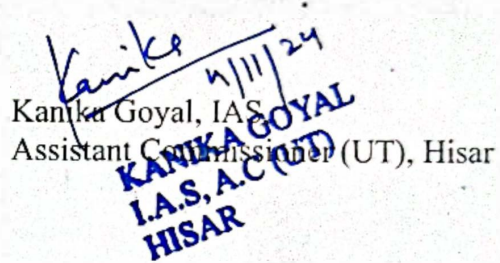 Kanika
4/11/24
Kanika Goyal, IAS
Assistant Commissioner (UT), Hisar
KANIKA GOYAL
I.A.S, A.C (UT)
HISAR